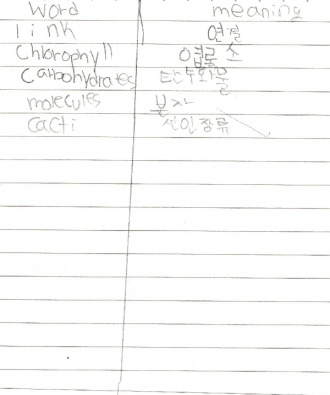 word meaning
link 연결
Chlorophyll 엽록소
Carbohydrates 탄수화물
molecules 분자
cacti 선인장류